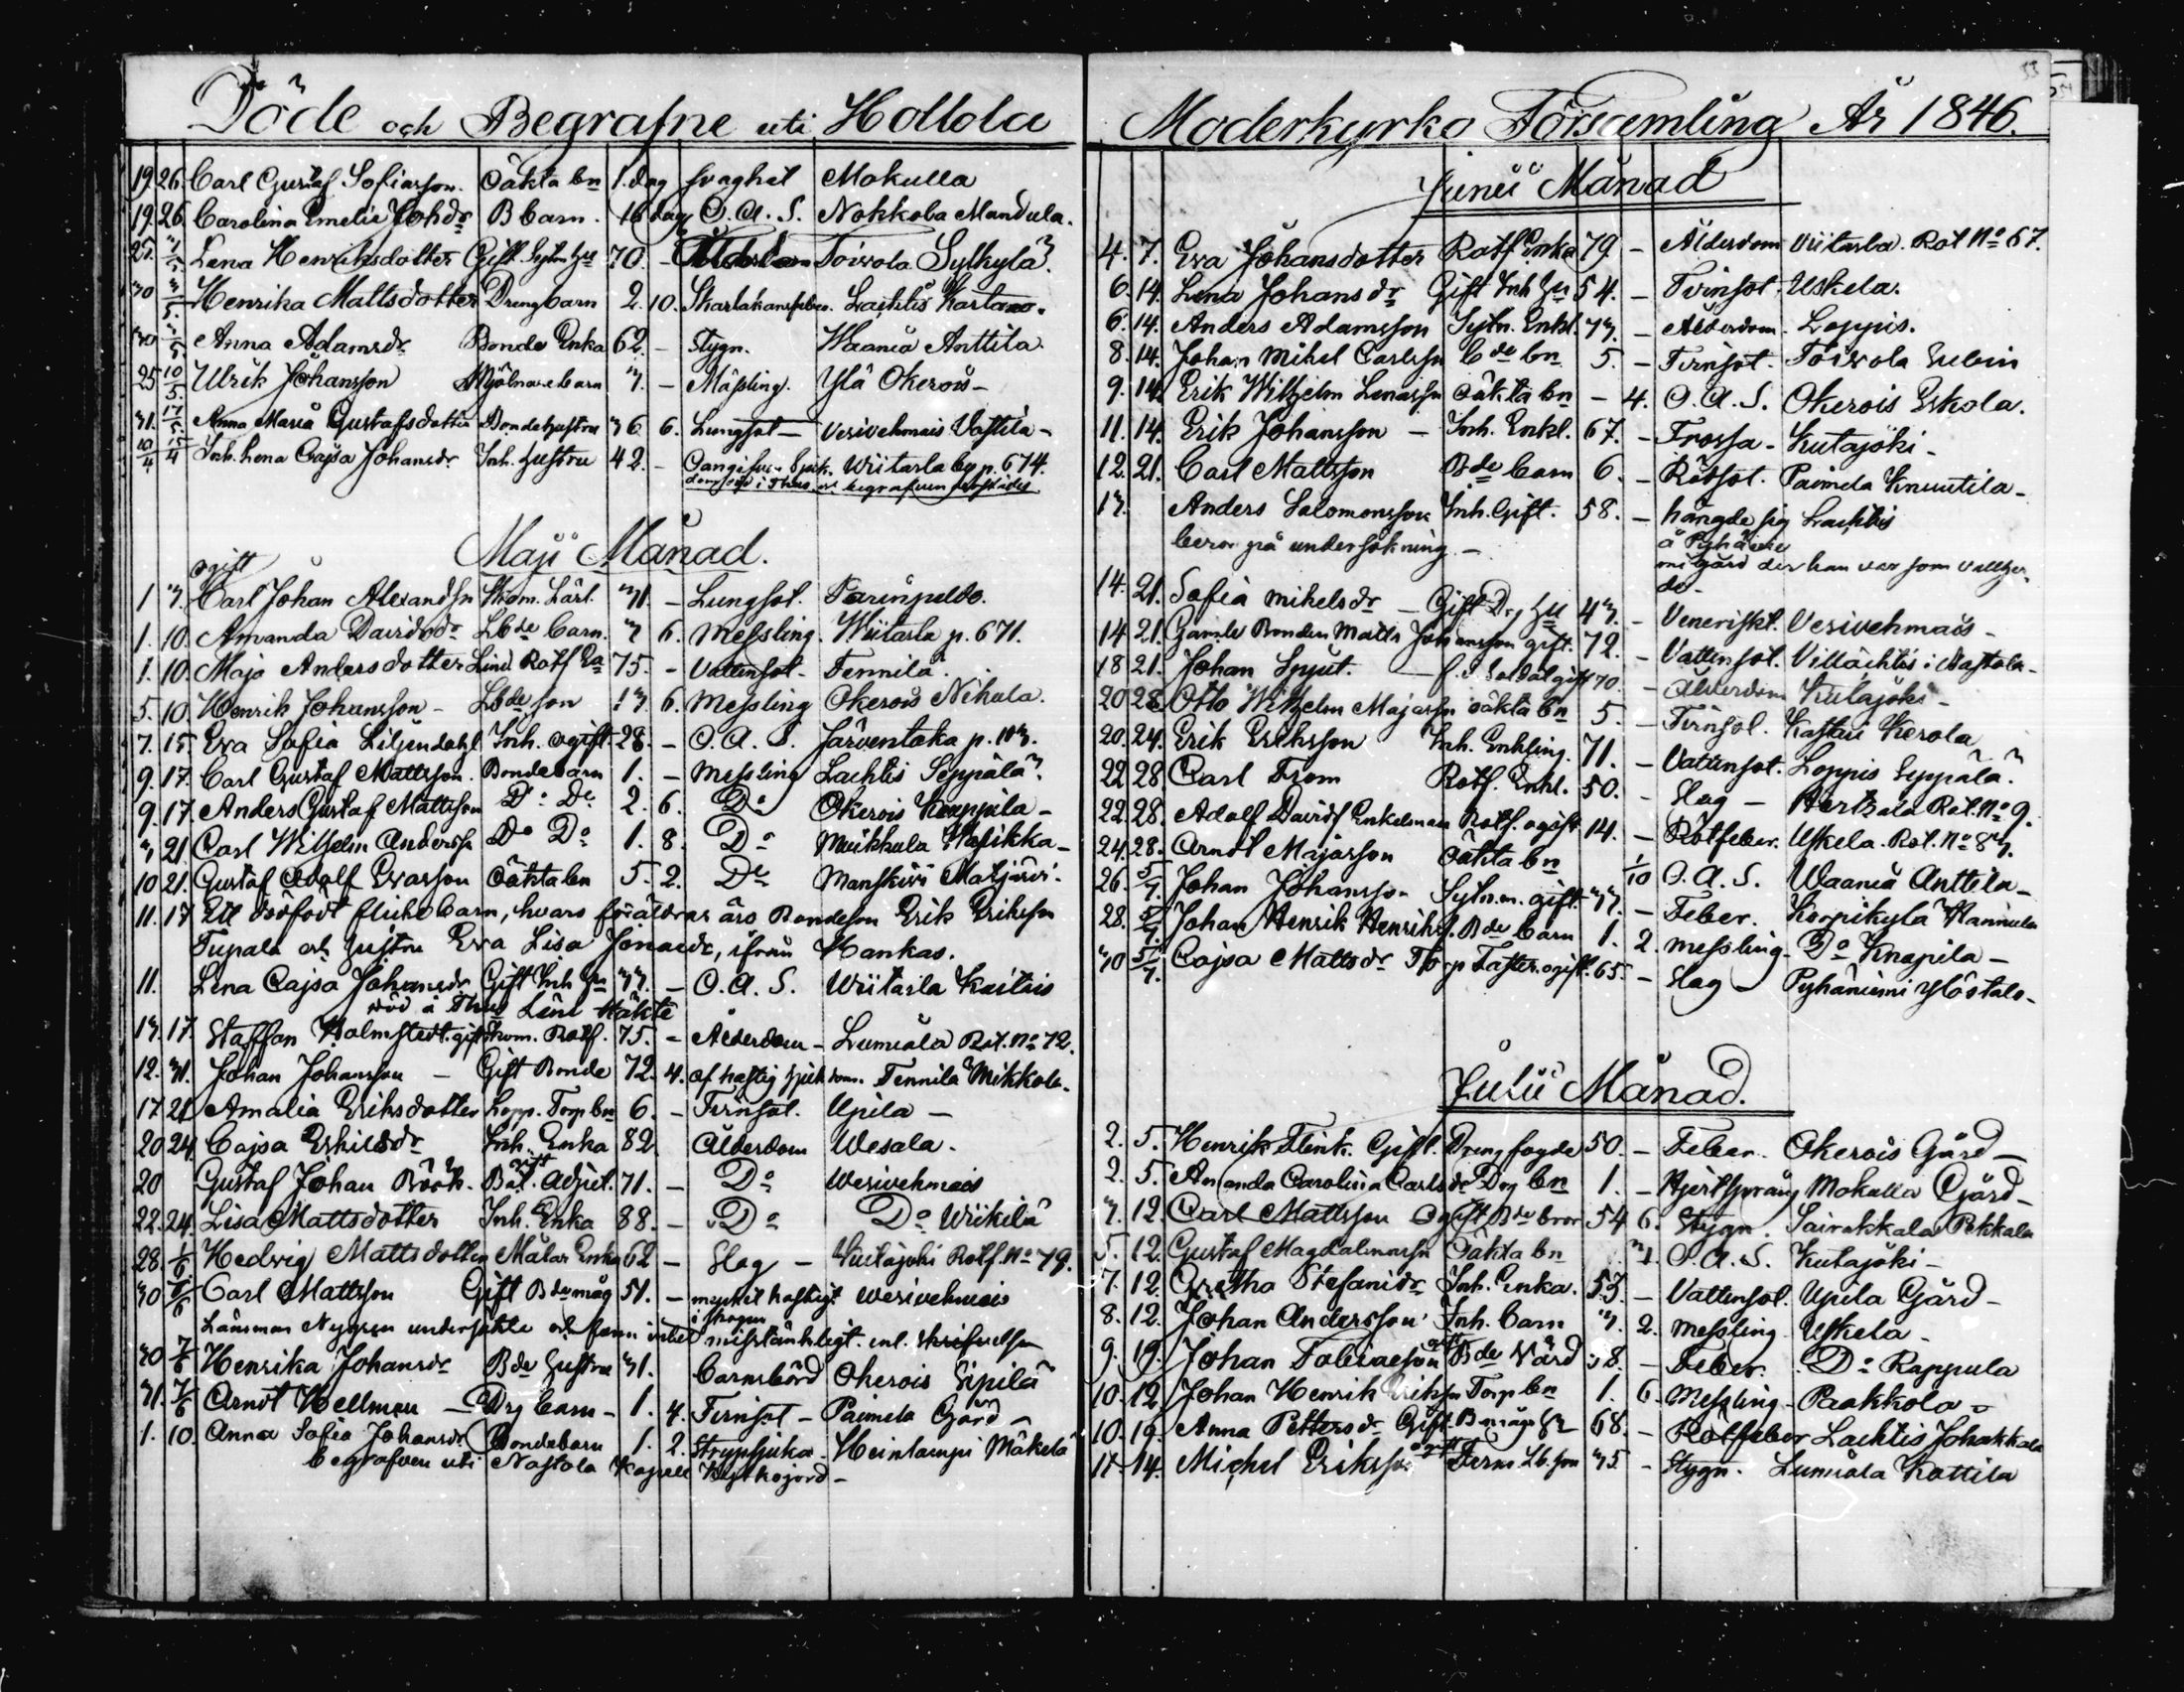 Döde och Begrafne uti Hollola
19. 26. Carl Gustaf Sofiasson. Oäkta bn 1. dag svaghet Mokulla
19. 26. Carolina Emelie Johdr B barn. 16 dag O. A. S. Nokkola Mandula.
25. 3/5. Lena Henriksdotter Gift 70. - Ålderdom Toivola Sylkylä.
30 3/5. Henrika Mattsdotter Drengbarn 2. 10. Skarlakansfeber. Lachtis Kartano.
30 3/5. Anna Adamsdr Bonde Enka 62. - Stygn. Waania Anttila
25 10/5. Ulrik Johansson Mjölnare barn 3. - Mässling. Ylä Okerois -
31. 17/5. Anna Maria Gustafsdotter Bondehustru 36 6. Lungsot - Vesivehmais Vastila -
10/4 15/4 Inh. Lena Cajsa Johansdr Inh. hustru 42. - Wiitaila by p. 674.
Maji Månad.
ogift
1 3. Carl Johan Alexandsn Skom. Lärl. 31. - Lungsot. Parinpelto.
1. 10. Amanda Davidsdr Lbde Barn. 3 6. Messling. Wiitaila p. 671.
1. 10. Maja Andersdotter Lind Rotf Ea 75. - Vattensot - Tennilä.
5. 10. Henrik Johansson - Lbde son 13. 6. Messling Okerois Nikula.
7. 15. Eva Sofia Liljendahl Inh. ogift. 28. - O. A. S. Järventaka p. 103.
9. 17. Carl Gustaf Mattsson. Bondebarn 1. - Messling Lachtis Seppälä.
9. 17. Anders Gustaf Mattsson Do Do 2. 6. Do Okerois Knappila -
3 21. Carl Wilhelm Anderssn Do Do 1. 8. Do Mukkula Wasikka -
10 21. Gustaf Adolf Evasson Oäkta bn 5. 2. Do Manskivi Matjärvi.
11. 17 Ett dödfödt flicko barn, hvars föräldrar äro Bondeson Erik Eriksson
Tupala och hustru Eva Lisa Jonasdr, ifrån Hankas.
11. Lena Cajsa Johansdr Gift Inh Hu 33. - O. A. S. Wiitaila Kaitais
död å Thus Läns Häkte
13. 17. Staffan Holmstedt. gift kom. Rotf. 75. - Ålderdom - Lumiala Rot. No 72.
12. 31. Johan Johansson - Gift Bonde 72. 4. af hastig sjukdom. Tennila Mikkola.
17 21 Amalia Eriksdotter Lopp. Torp bn 6. - Tvinsot. Upila -
20 24. Cajsa Eskilsdr Inh. Enka 82 Ålderdom Wesala.
20 Gustaf Johan Böök. Bat. Adjut. 71. - Do Wesivehmais
gift
22. 24. Lisa Mattsdotter Inh. Enka 88. - Do Do Wiikilä
28. 1/6 Hedvig Mattsdotter Målar Enka 62 - Slag - Kutajoki Rotf. No 79.
30 7/6 Carl Mattsson Gift Bdemåg 51. - mycket hastigt Wesivehmais
i skogen
Länsman Nygren undersökte och fann intet misstänkligt. enl. skrifvelsen
30 7/6 Henrika Johansdr Bde hustru 31. Barnsbörd Okerois Sipilä
31. 7/6 Arndt Hellman - Drg barn - 1. 4. Tvinsot - Paimela Gård -
1. 10. Anna Sofia Johansdr Bondebarn 1. 2. Strypsjuka. Heinlampi Mäkelä
begrafven uti Nastola Kapell Kyrkojord -
33
Moderkyrko Församling År 1846.
Junii Månad
4. 7. Eva Johansdotter Rotf. Enka 79 - Ålderdom Viitaila. Rot No 67.
6. 14. Lena Johansdr Gift Inh Hu 54. - Tvinsot. Uskela.
6. 14. Anders Adamsson Sytn. Enkl. 73. - Ålderdom. Loppis.
8. 14. Johan Mihel Carlssn bde bn 5. - Tvinsot. Toivola Eulein
9. 14. Erik Wilhelm Lenasson oäkta bn - 4. O. A. S. Okerois Eskola.
11. 14. Erik Johansson - Inh. Enkl. 67. - Frossa - Kutajoki -
12. 21. Carl Mattsson Bde barn 6 - Rötsot. Paimela Knuutila -
13. Anders Salomonsson Inh. Gift. 58. - hängde sig Lachtis
beror på undersökning - å Pyhänie
mi gård der han var som vallher-
de -
14. 21. Sofia Mihelsdr - Gift Drg Hu 43. - Veneriskt. Vesivehmais -
14 21. Gamle Bonden Matts Johansson gift. 72. - Vattensot. Villächtis i Nastola -
18 21. Johan Spjut. - f. d. Soldat gift 70. - Ålderdom Kutajoki -
20 28. Otto Wilhelm Majasson oäkta bn 5. - Tvinsot. Kastari Kerola
20. 24. Erik Eriksson Inh. Enkling. 71. - Vattensot. Loppis Seppälä.
22 28 Carl From Rotf. Enkl. 50. - Slag - Hertzala Rot. No 9.
22. 28. Adolf Davids Enkelman Rotf. ogift 14. - Rötfeber. Uskela. Rot. No 83.
24. 28. Arndt Majasson Oäkta bn 1/10 O. A. S. Waania Anttila -
26. 5/7. Johan Johansson Sytn. m. gift 33. - Feber. Korpikylä Hannula
28. 5/7. Johan Henrik Henriks. Bde barn 1. 2. Messling - Do Knapila -
30 5/7. Cajsa Mattsdr Torp Faster. ogift. 65. - Slag - Pyhäniemi Ylöstalo -
Julii Månad.
2. 5. Henrik Flink. Gift. Drengfogde 50. - Feber. Okerois Gård -
2. 5. Amanda Carolina Carlsdr Drg bn 1. - Hjertsprång Mokulla Gård -
3. 12. Carl Mattsson Ogift Bde bror 54 6. Stygn. Sairakkala Pekkala
5. 12. Gustaf Magdalenasn Oäkta bn 3/4. O. A. S. Kutajoki -
7. 12. Gretha Stefansdr Inh. Enka. 53. - Vattensot. Upila Gård -
8. 12. Johan Andersson Inh. barn 3. 2. Messling Uskela -
9. 19. Johan Tobiaeson Bde Värd 38. - Feber. Do Rappula
10. 12. Johan Henrik Eriksn Torp bn 1. 6. Messling - Paakkola -
10. 19. Anna Pettersdr Gift B måg Hu 68. - Rötfeber Lachtis Johakkala
11. 14. Michel Eriksson Lb. son 35 - Stygn. Lumiala Kottila